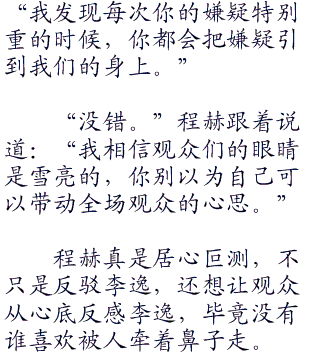 “我发现每次你的嫌疑特别
重的时候，你都会把嫌疑引
到我们的身上。”
“没错。”程赫跟着说
道：“我相信观众们的眼睛
是雪亮的，你别以为自己可
以带动全场观众的心思。”
程赫真是居心叵测，不
只是反驳李逸，还想让观众
从心底反感李逸，毕竟没有
谁喜欢被人牵着鼻子走。